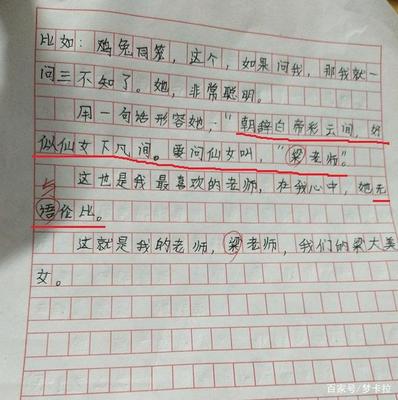 比如：鸡兔同笼，这个，如果问我，那我就一
问三不知了。她，非常聪明。
用一句话形容她："朝辞白帝彩云间，好
似仙女下凡间。要问仙女叫，"梁老师"。
这也是我最喜欢的老师，在我心中，她无
与
语伦比。
这就是我的老师，梁老师，我们的梁大美
女。
百家号/梦卡拉